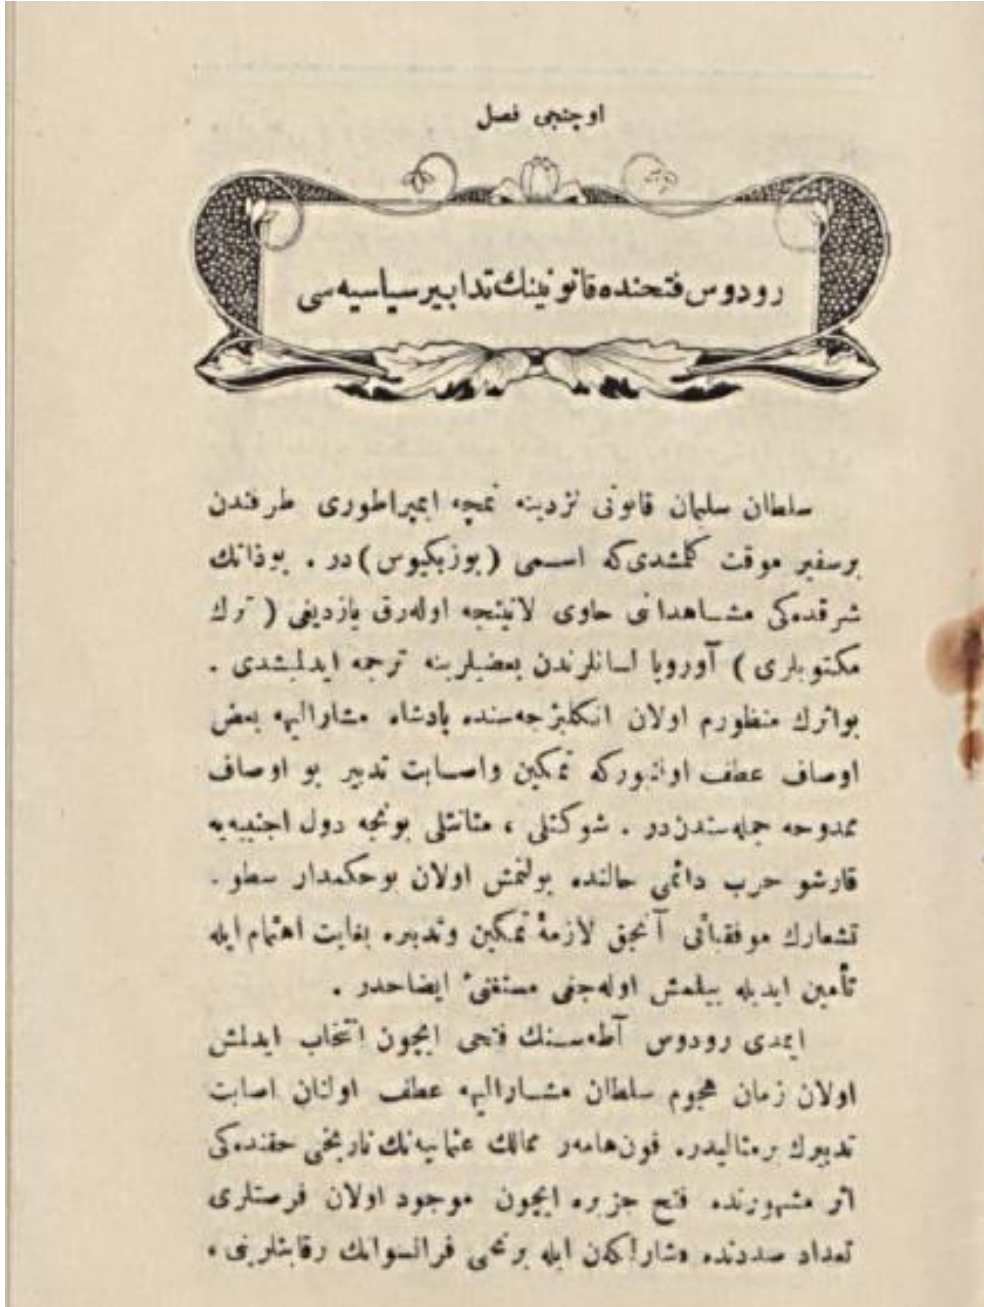 اوچنجی فصل
رودوس فتحنده قانونینك تدابیر سیاسیه سی
سلطان سلیمان قانونی نزدینه نمچه ایمپراطوری طرفندن
برسفیر موقت كلمشدی كه اسمی (بوزبكیوس) در . بوذاتك
شرقده كی مشاهداتی حاوی لاتینجه اوله رق یازدیغی ( ترك
مكتوبلری ) آوروپا لسانلرندن بعضیلرینه ترجمه ایدلمشدی .
بواثرك منظورم اولان انكلیزجه سنده پادشاه مشارالیهه بعض
اوصاف عطف اولنیوركه تمكین واصابت تدبیر بو اوصاف
ممدوحه جمله سندن در . شوكتلی ، متانتلی بونجه دول اجنبیه یه
قارشو حرب دائمی حالنده بولنمش اولان بوحكمدار سطو .
تشعارك موفقیاتی آنجق لازمهٔ تمكین وتدبیره بغایت اهتمام ایله
تأمین ایدیله بیلمش اوله جغی مستغنئ ایضاحدر .
ایمدی رودوس آطه سنك فتحی ایچون انتخاب ایدلمش
اولان زمان هجوم سلطان مشارالیهه عطف اولنان اصابت
تدبیرك برمثالیدر. فون هامه ر ممالك عثمانیه نك تاریخی حقنده كی
اثر مشهورنده فتح جزیره ایچون موجود اولان فرصتلری
تعداد صددنده شارلكن ایله برنجی فرانسوانك رقابتلرینی ،